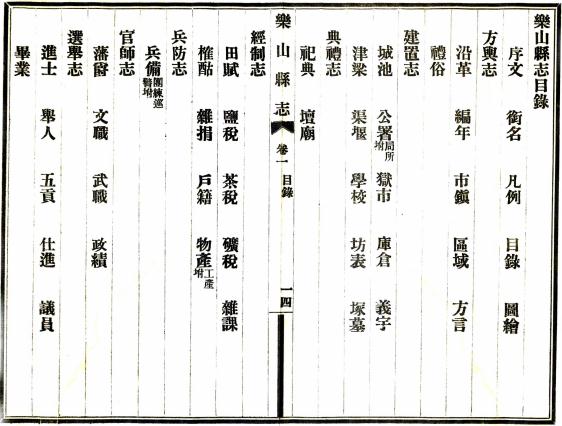 樂山縣志目錄
序文 銜名 凡例 目錄 圖繪
方輿志
沿革 編年 市鎮 區域 方言
禮俗
建置志
城池 公署局所附 獄市 庫倉 義宇
津梁 渠堰 學校 坊表 塚墓
典禮志
祀典 壇廟
樂山縣志 卷一 目錄 一四
經制志
田賦 鹽稅 茶稅 礦稅 雜課
榷酤 雜捐 戶籍 物產工產附
兵防志
兵備團練巡警附
官師志
藩爵 文職 武職 政績
選舉志
進士 舉人 五貢 仕進 議員
畢業